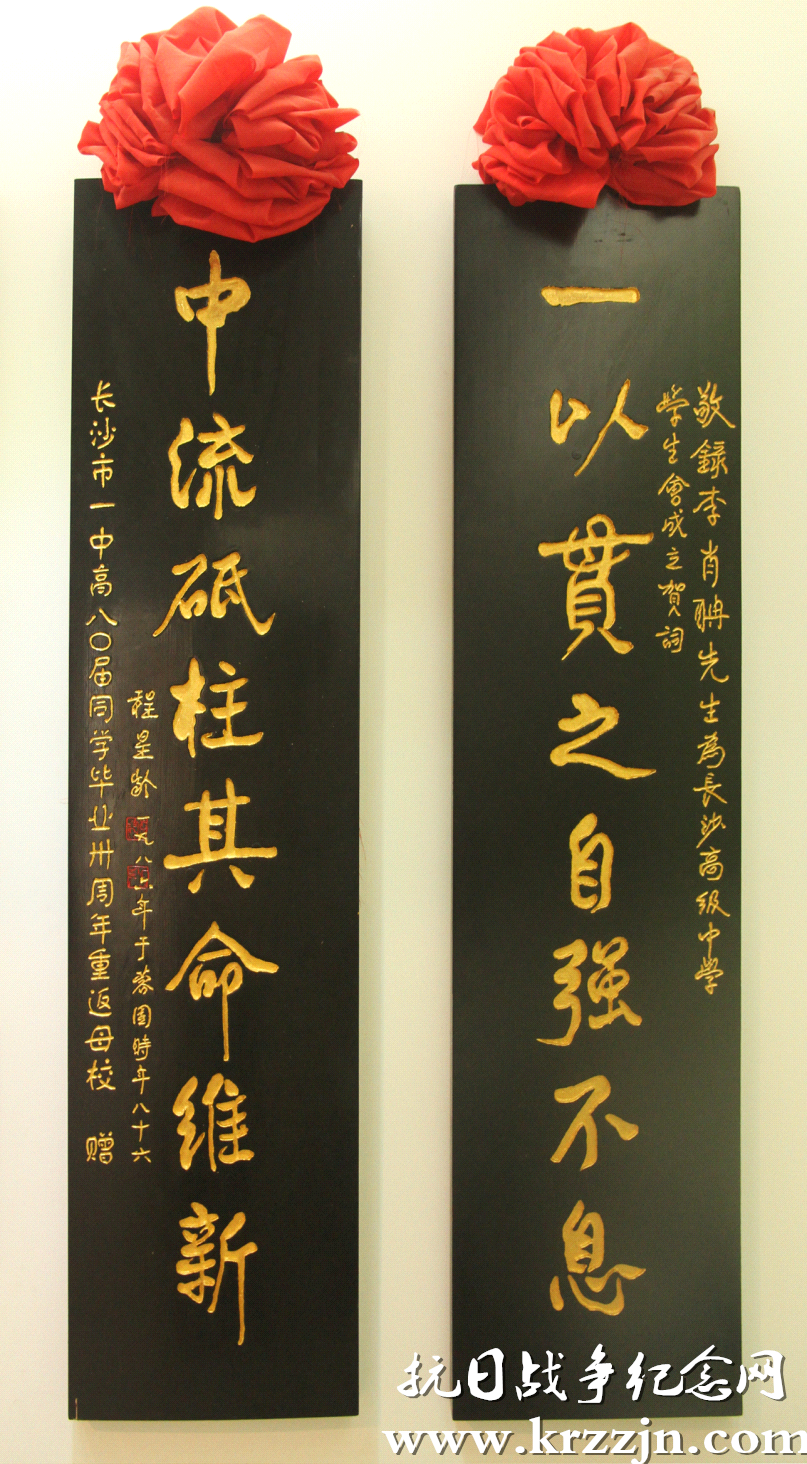 敬録李肖聃先生為長沙高级中学
學生會成立賀詞
一以貫之自强不息
中流砥柱其命維新
程星龄 一九八六年于蓉園時年八十六
长沙市一中高八〇届同学毕业卅周年重返母校 赠
抗日战争纪念网
www.krzzjn.com